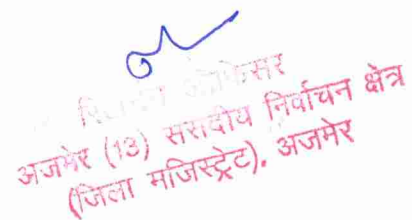 अजमेर (13) संसदीय निर्वाचन क्षेत्र
(जिला मजिस्ट्रेट), अजमेर